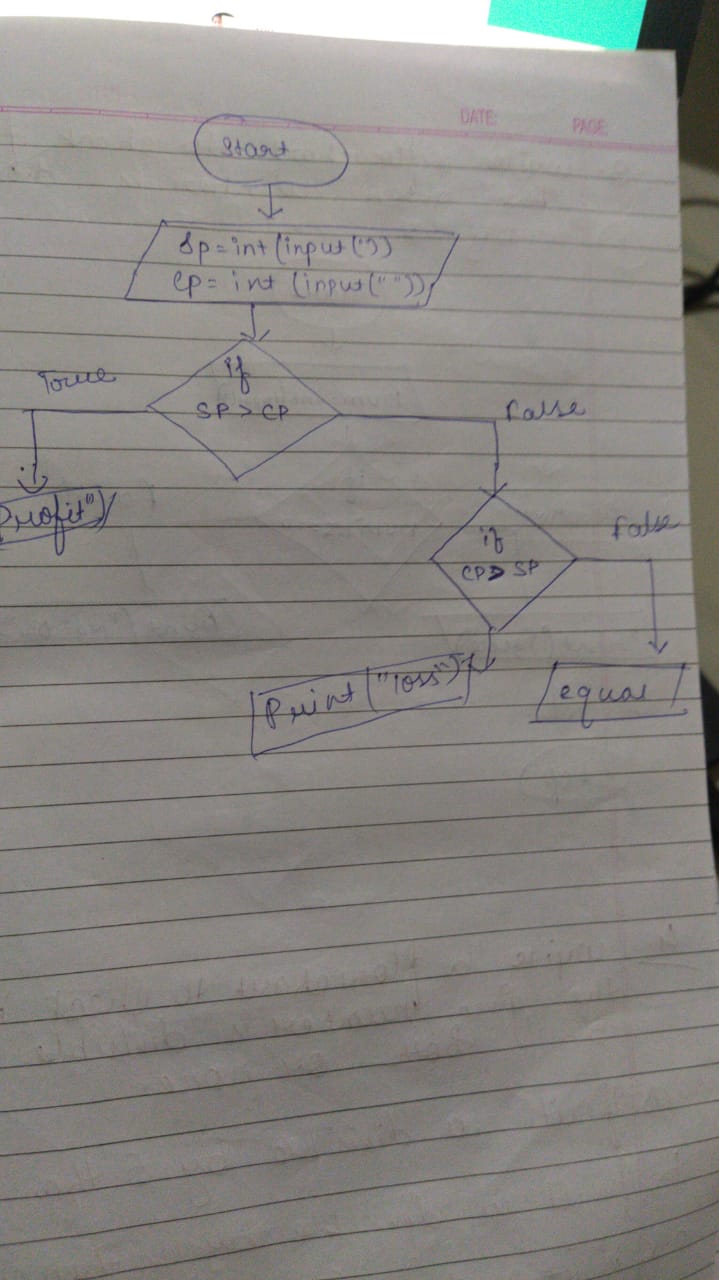 DATE:
PAGE:
Start
Sp = int (input (" "))
Cp = int (input (" "))
if
SP > CP
True
False
Profit")
if
CP > SP
False
Print ("loss")
equal